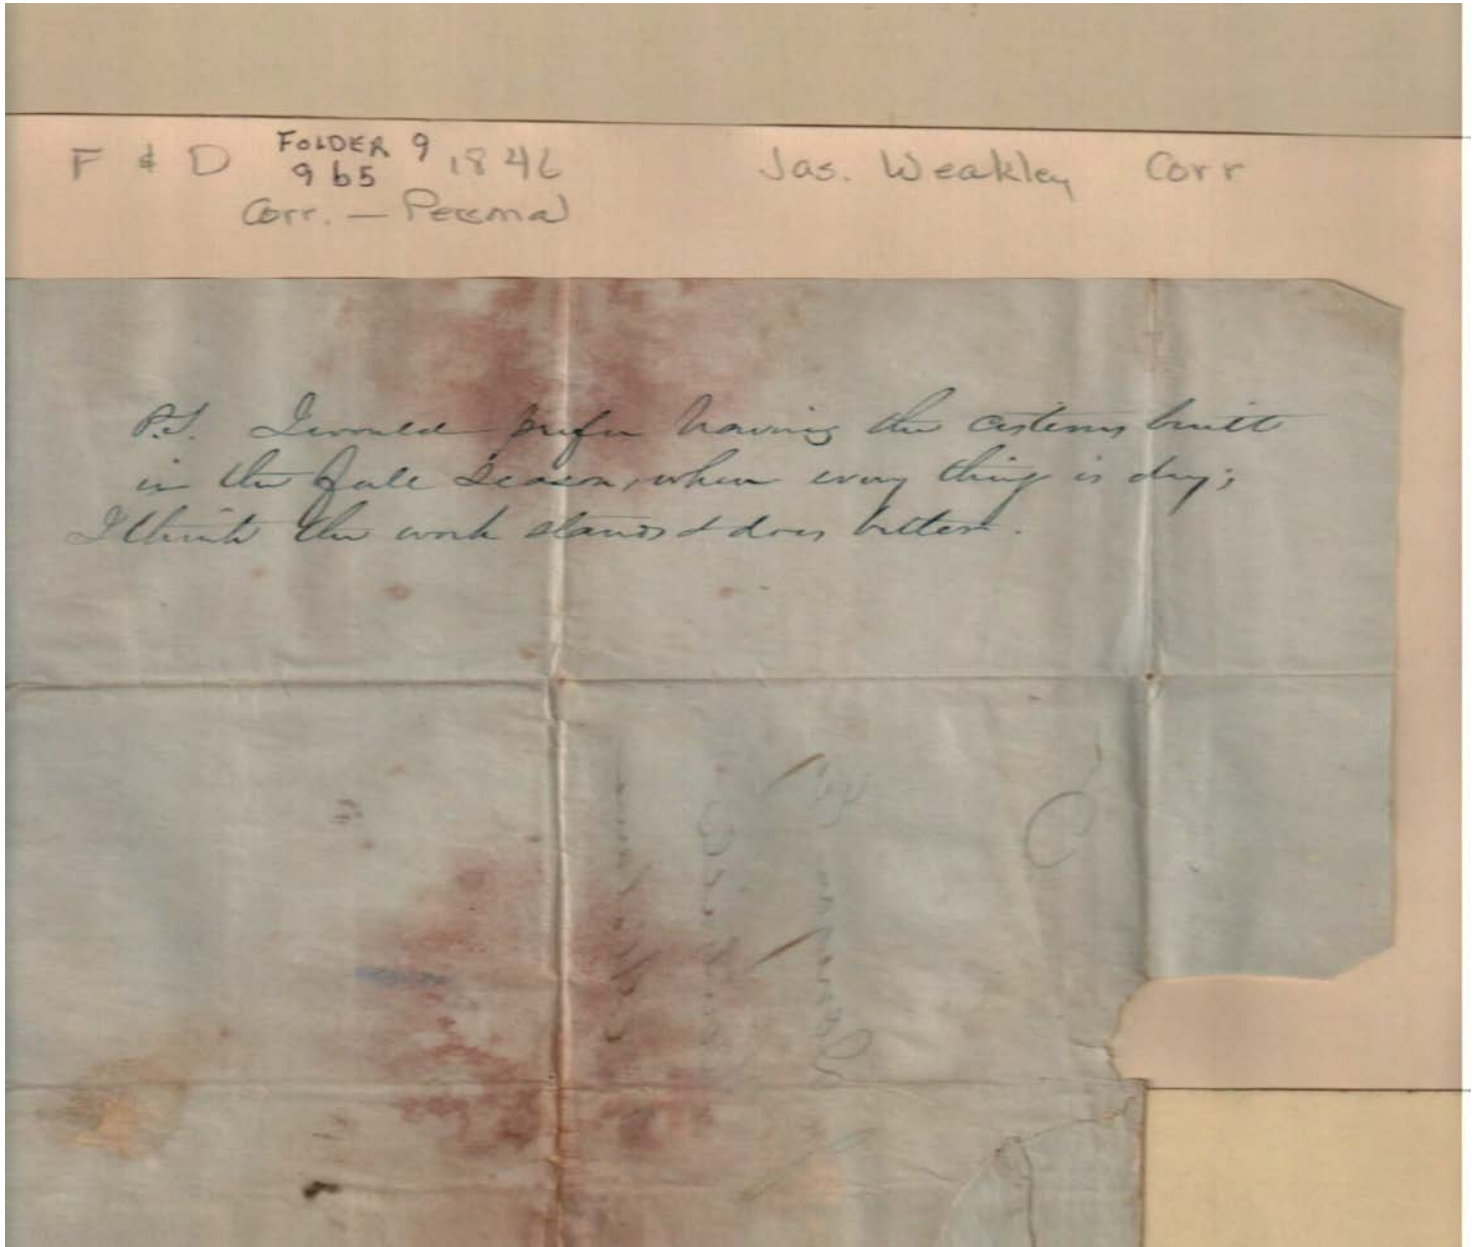 F & D FOLDER 9 1846 Jas. Weakley Corr
9b5
Corr. — Personal
P.S. I would prefer having the cisterns built
in the fall season, when every thing is dry;
I think the work stands & does better.